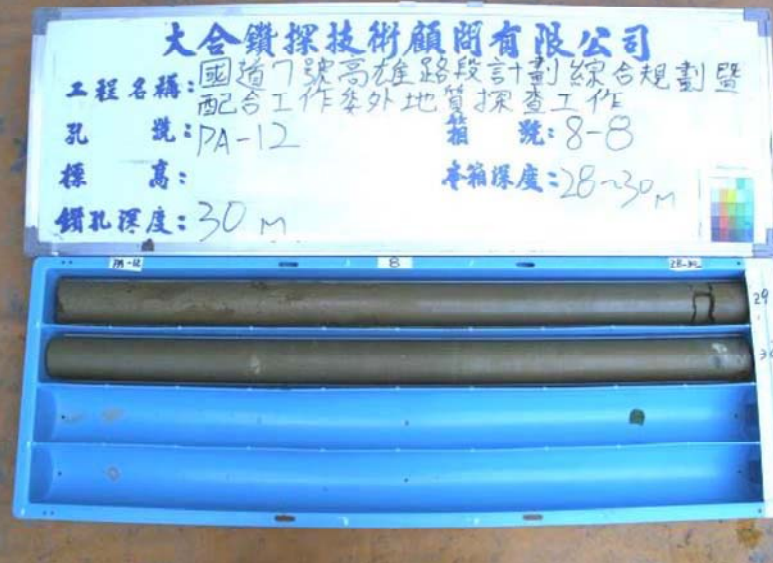 大合鑽探技術顧問有限公司
工程名稱:國道7號高雄路段計劃綜合規劃暨
配合工作委外地質探查工作
孔 號:PA-12 箱 號:8-8
標 高: 本箱深度:28~30m
鑽孔深度:30m
PA-12 8 28-30
29
30